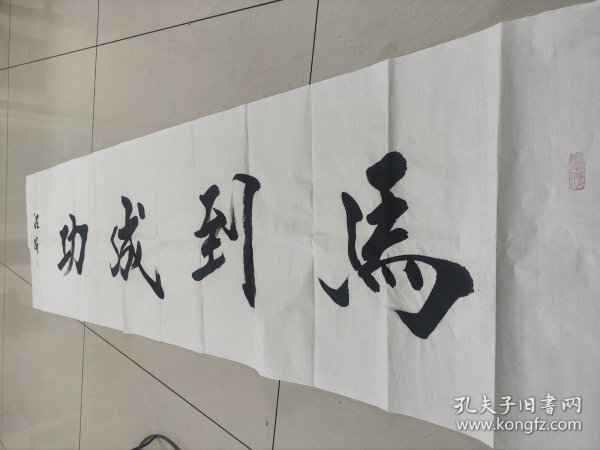 馬到成功
孔夫子旧书网
www.kongfz.com